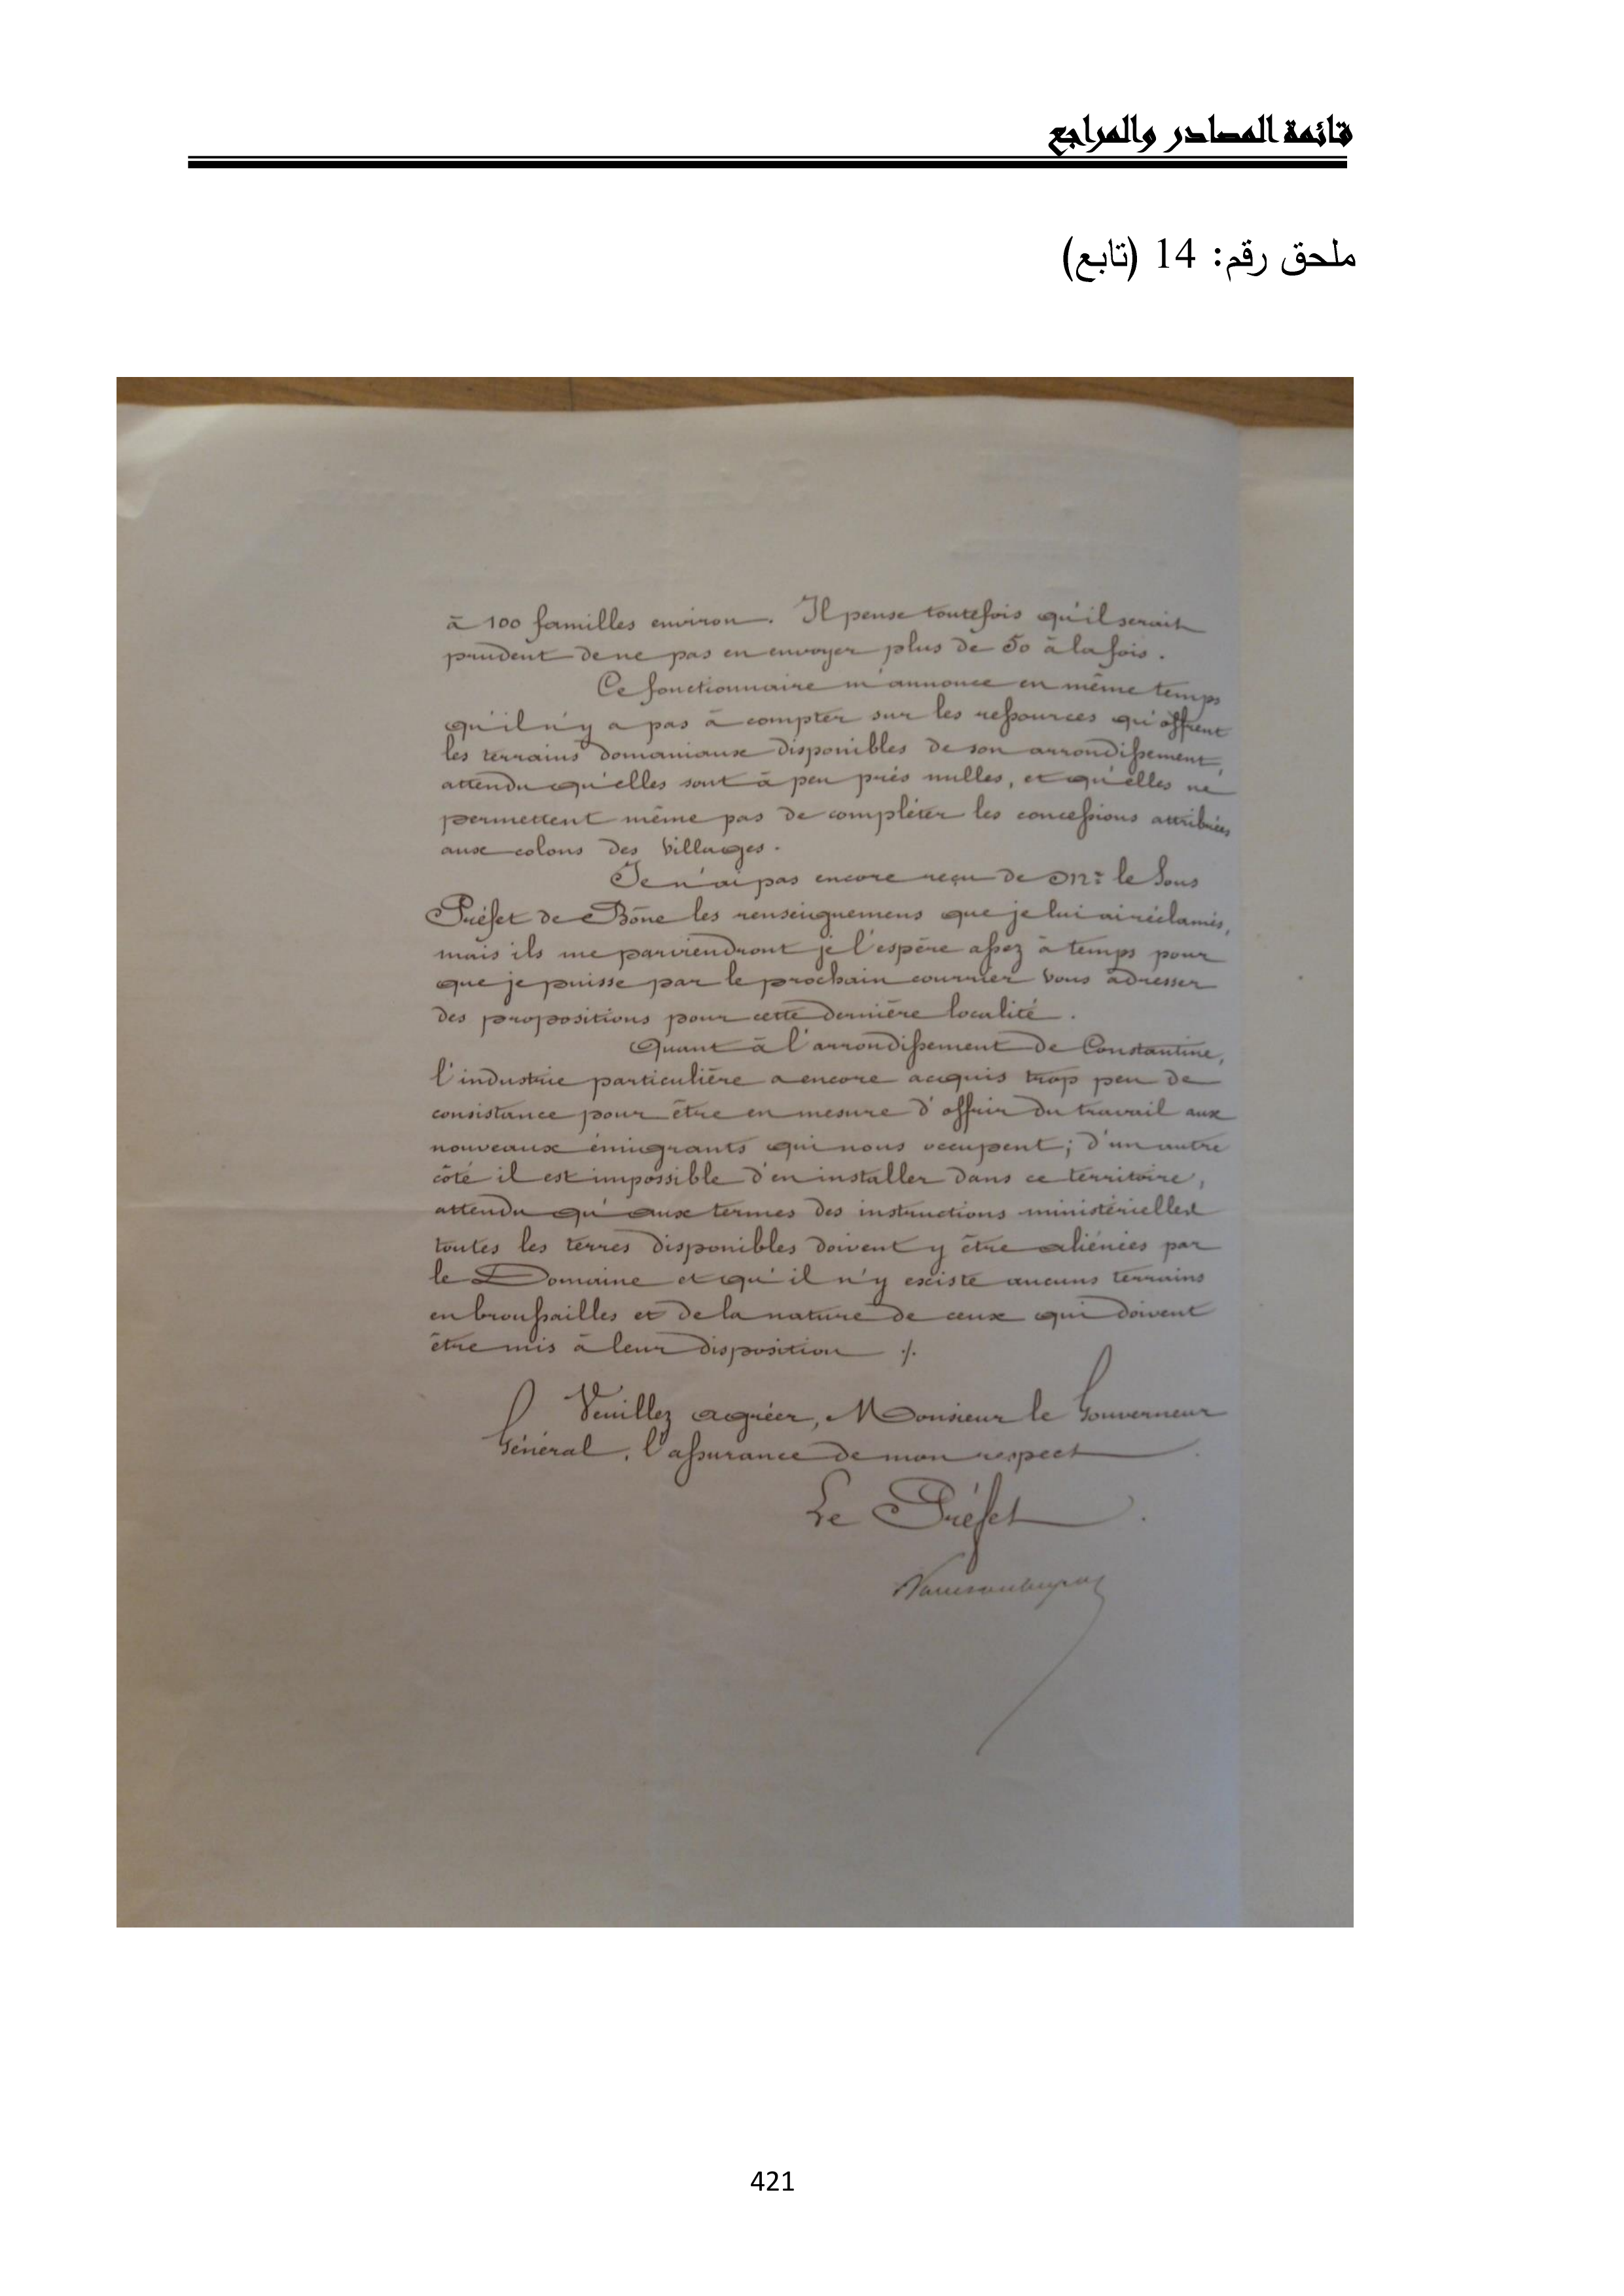 قائمة المصادر والمراجع
ملحق رقم: 14 (تابع)
à 100 familles environ. Il pense toutefois qu'il serait
prudent de ne pas en envoyer plus de 50 à la fois.
Ce fonctionnaire m'annonce en même temps
qu'il n'y a pas à compter sur les ressources qu'offrent
les terrains domaniaux disponibles de son arrondissement,
attendu qu'elles sont à peu près nulles, et qu'elles ne
permettent même pas de compléter les concessions attribuées
aux colons des villages.
Je n'ai pas encore reçu de Mr. le Sous
Préfet de Bône les renseignemens que je lui ai réclamés,
mais ils me parviendront je l'espère assez à temps pour
que je puisse par le prochain courrier vous adresser
des propositions pour cette dernière localité.
Quant à l'arrondissement de Constantine,
l'industrie particulière a encore acquis trop peu de
consistance pour être en mesure d'offrir du travail aux
nouveaux émigrants qui nous occupent; d'un autre
côté il est impossible d'en installer dans ce territoire,
attendu qu'aux termes des instructions ministérielles
toutes les terres disponibles doivent y être aliénées par
le Domaine et qu'il n'y existe aucuns terrains
en broussailles et de la nature de ceux qui doivent
être mis à leur disposition ./.
Veuillez agréer, Monsieur le Gouverneur
Général, l'assurance de mon respect.
Le Préfet.
421